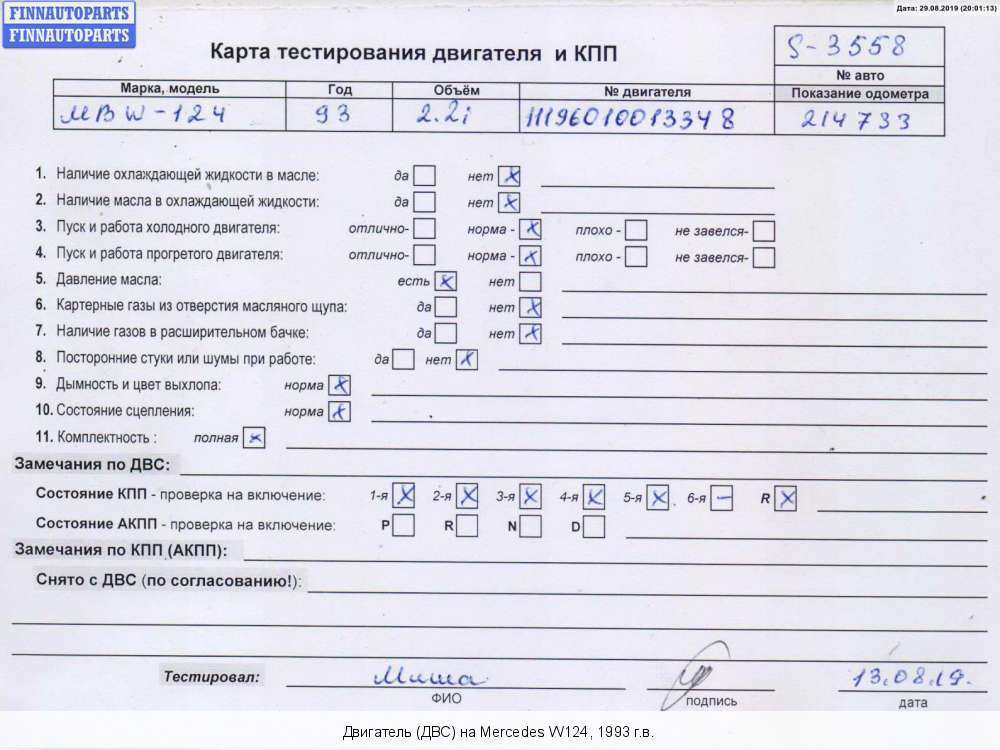 FINNAUTOPARTS
FINNAUTOPARTS
Дата: 29.08.2019 (20:01:13)
Карта тестирования двигателя и КПП
S-3558
№ авто
Марка, модель Год Объём № двигателя Показание одометра
MBW-124 93 2.2i 11196010013348 214733
1. Наличие охлаждающей жидкости в масле: да нет x
2. Наличие масла в охлаждающей жидкости: да нет x
3. Пуск и работа холодного двигателя: отлично- норма - x плохо - не завелся-
4. Пуск и работа прогретого двигателя: отлично- норма - x плохо - не завелся-
5. Давление масла: есть x нет
6. Картерные газы из отверстия масляного щупа: да нет x
7. Наличие газов в расширительном бачке: да нет x
8. Посторонние стуки или шумы при работе: да нет x
9. Дымность и цвет выхлопа: норма x
10. Состояние сцепления: норма x
11. Комплектность : полная x
Замечания по ДВС:
Состояние КПП - проверка на включение: 1-я x 2-я x 3-я x 4-я x 5-я x 6-я – R x
Состояние АКПП - проверка на включение: P R N D
Замечания по КПП (АКПП):
Снято с ДВС (по согласованию!):
Тестировал: Миша 13.08.19.
ФИО подпись дата
Двигатель (ДВС) на Mercedes W124, 1993 г.в.